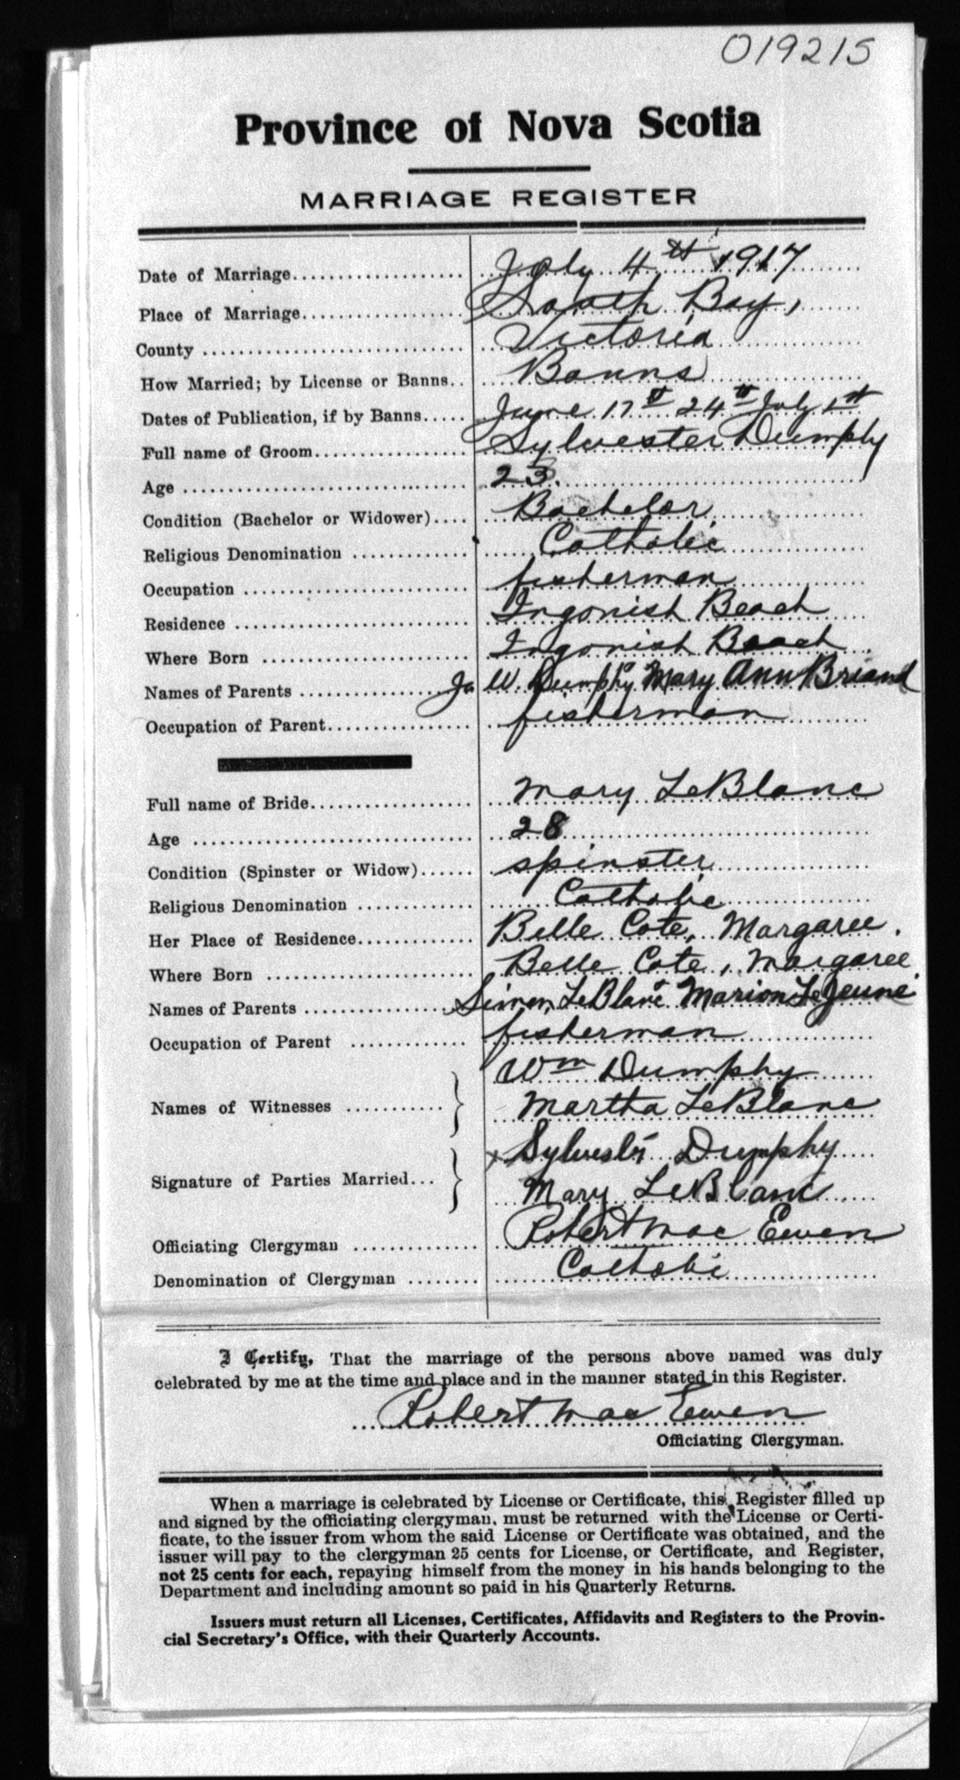 019215
Province of Nova Scotia
MARRIAGE REGISTER
Date of Marriage July 4th 1917
Place of Marriage South Bay,
County Victoria
How Married; by License or Banns Banns
Dates of Publication, if by Banns June 17th 24th July 1st
Full name of Groom Sylvester Dumphy
Age 23.
Condition (Bachelor or Widower) Bachelor
Religious Denomination Catholic
Occupation fisherman
Residence Ingonish Beach
Where Born Ingonish Beach
Names of Parents W. Dumphy Mary Ann Briand
Occupation of Parent fisherman
Full name of Bride Mary LeBlanc
Age 28
Condition (Spinster or Widow) spinster
Religious Denomination Catholic
Her Place of Residence Belle Cote, Margaree.
Where Born Belle Cote, Margaree
Names of Parents Simon LeBlanc + Marion LeJeune
Occupation of Parent fisherman
Wm Dumphy
Names of Witnesses
Martha LeBlanc
x Sylvester Dumphy
Signature of Parties Married
Mary LeBlanc
Officiating Clergyman Robert MacEwen
Denomination of Clergyman Catholic
I Certify, That the marriage of the persons above named was duly
celebrated by me at the time and place and in the manner stated in this Register.
Robert MacEwen
Officiating Clergyman.
When a marriage is celebrated by License or Certificate, this Register filled up
and signed by the officiating clergyman, must be returned with the License or Certi-
ficate, to the issuer from whom the said License or Certificate was obtained, and the
issuer will pay to the clergyman 25 cents for License, or Certificate, and Register,
not 25 cents for each, repaying himself from the money in his hands belonging to the
Department and including amount so paid in his Quarterly Returns.
Issuers must return all Licenses, Certificates, Affidavits and Registers to the Provin-
cial Secretary's Office, with their Quarterly Accounts.